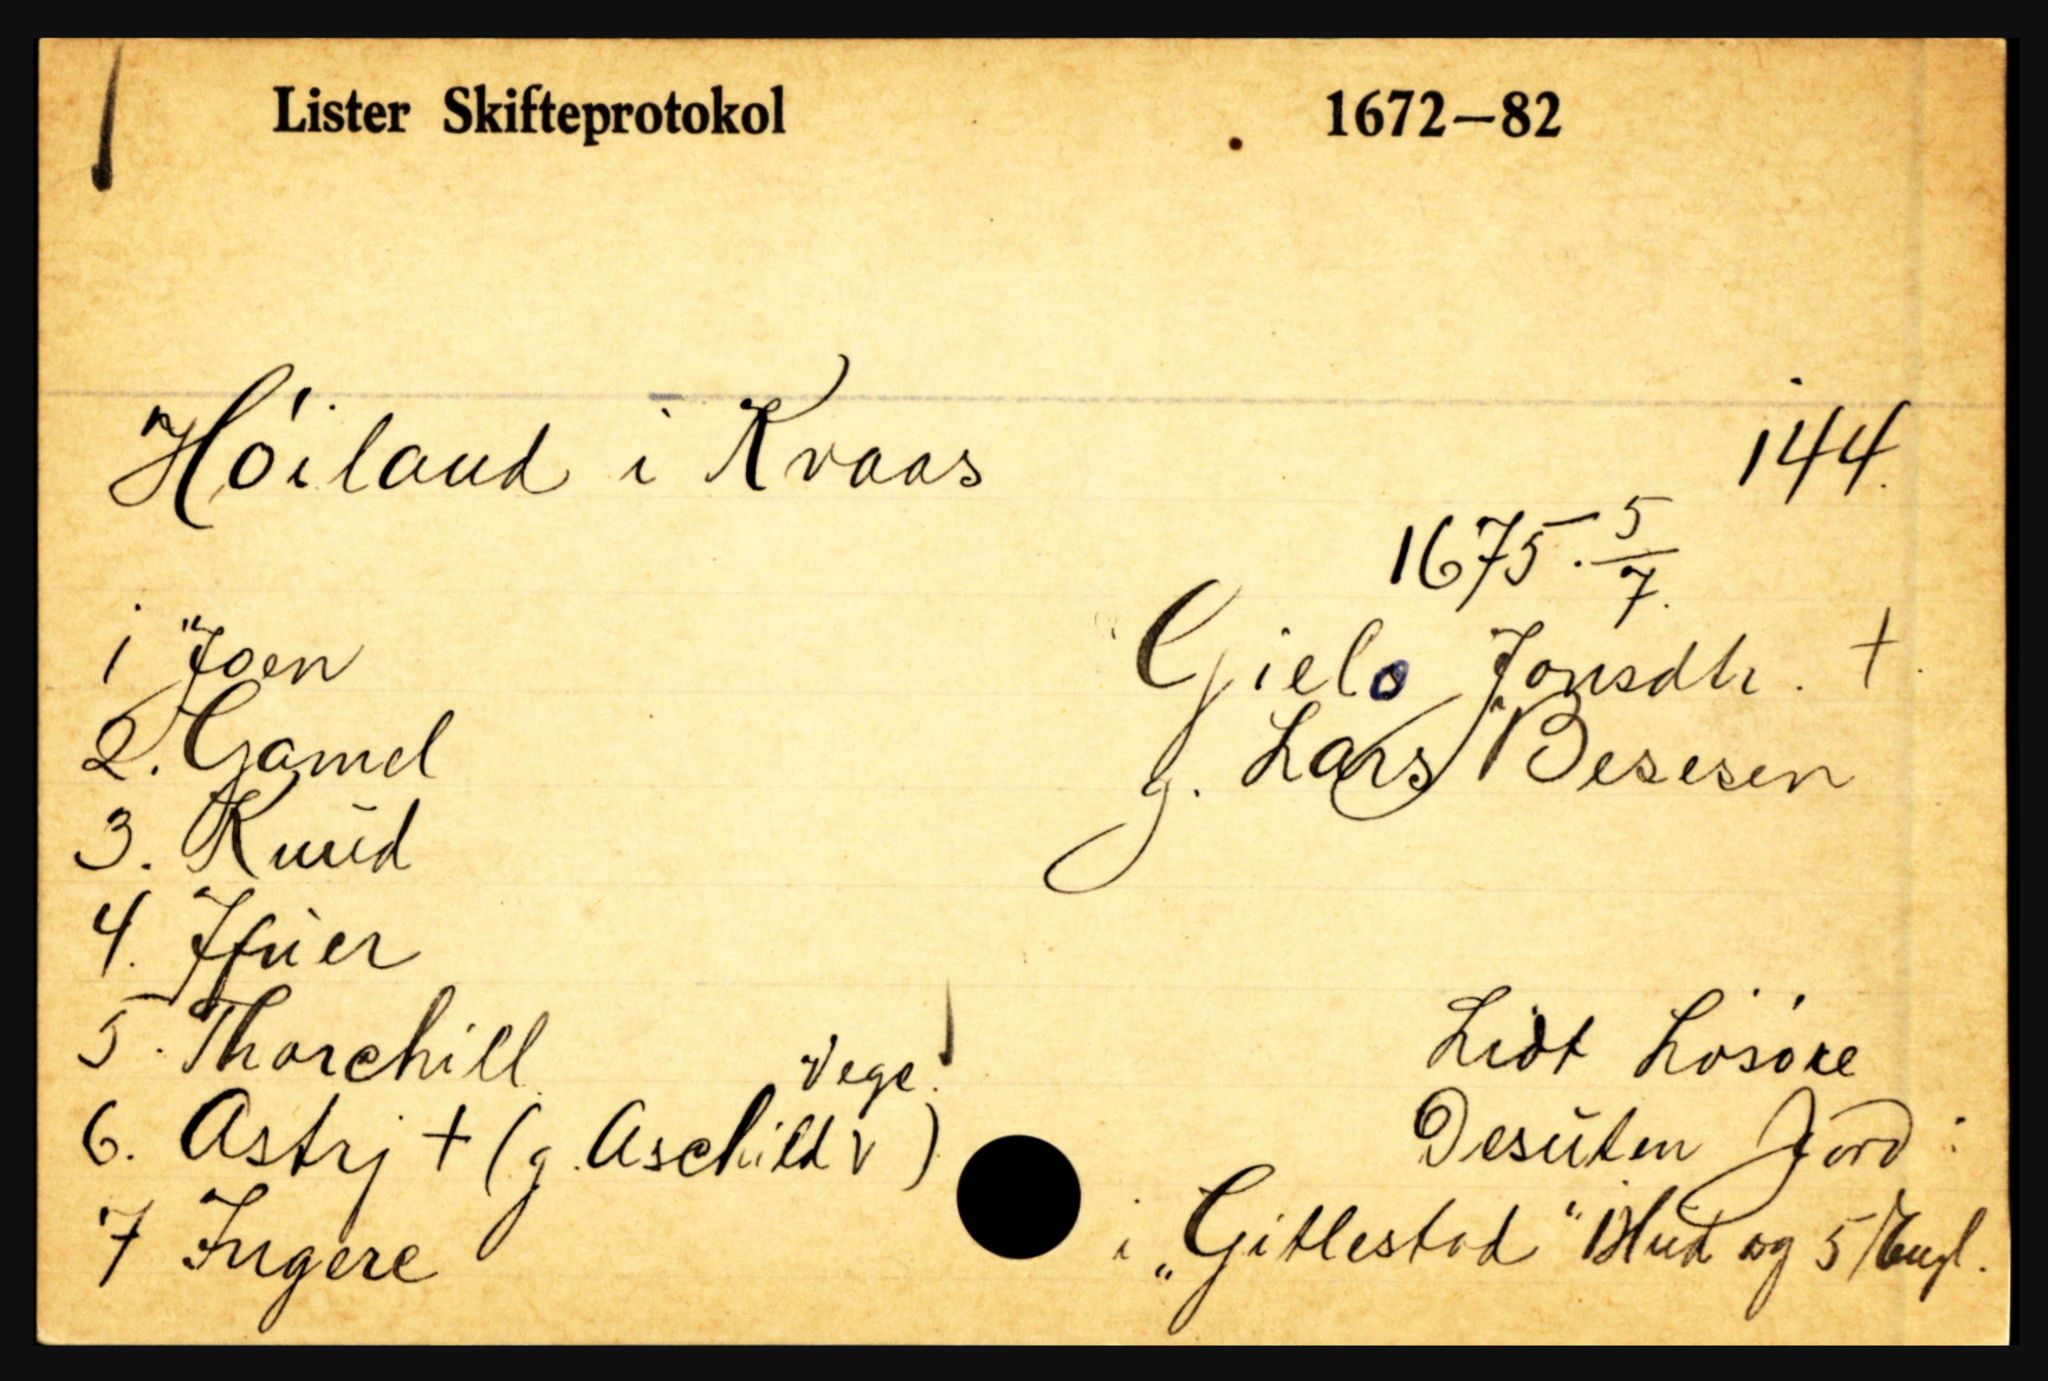 Lister Skifteprotokol 1672–82
Höiland i Kvaas 144.
1675. 5/7.
1 Joen
Gielo Jonsdtr. +.
2. Gamel
g. Lars Besesen
3. Knŭd
4. Ifŭer
5. Thorchill
Lidt Lösöre
Vege.
6. Astrj + (g. Aschild v )
Desŭten Jord:
7 Ingere
i „Gitlestad“ 1 Hŭd og 5 Engl.